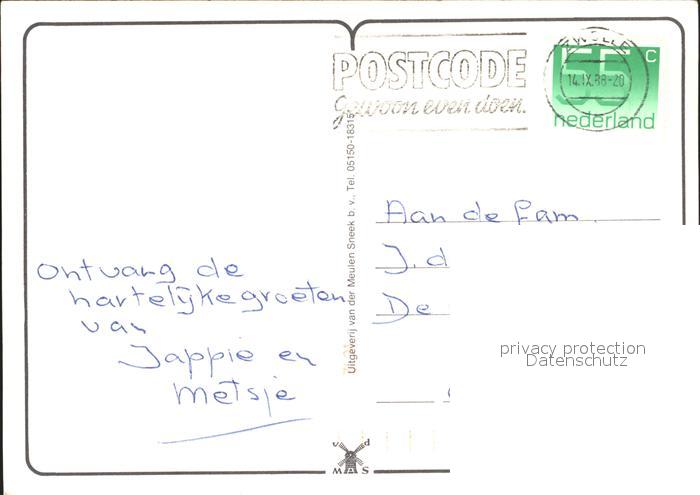 POSTCODE
gewoon even doen.
ZWOLLE
14.IX.88-20
55 c
nederland
Uitgeverij van der Meulen Sneek b.v., Tel. 05150-18315
Ontvang de
hartelijke groeten
van
Jappie en
Metsje
Aan de fam.
J. d
De
privacy protection
Datenschutz
v d
MAS